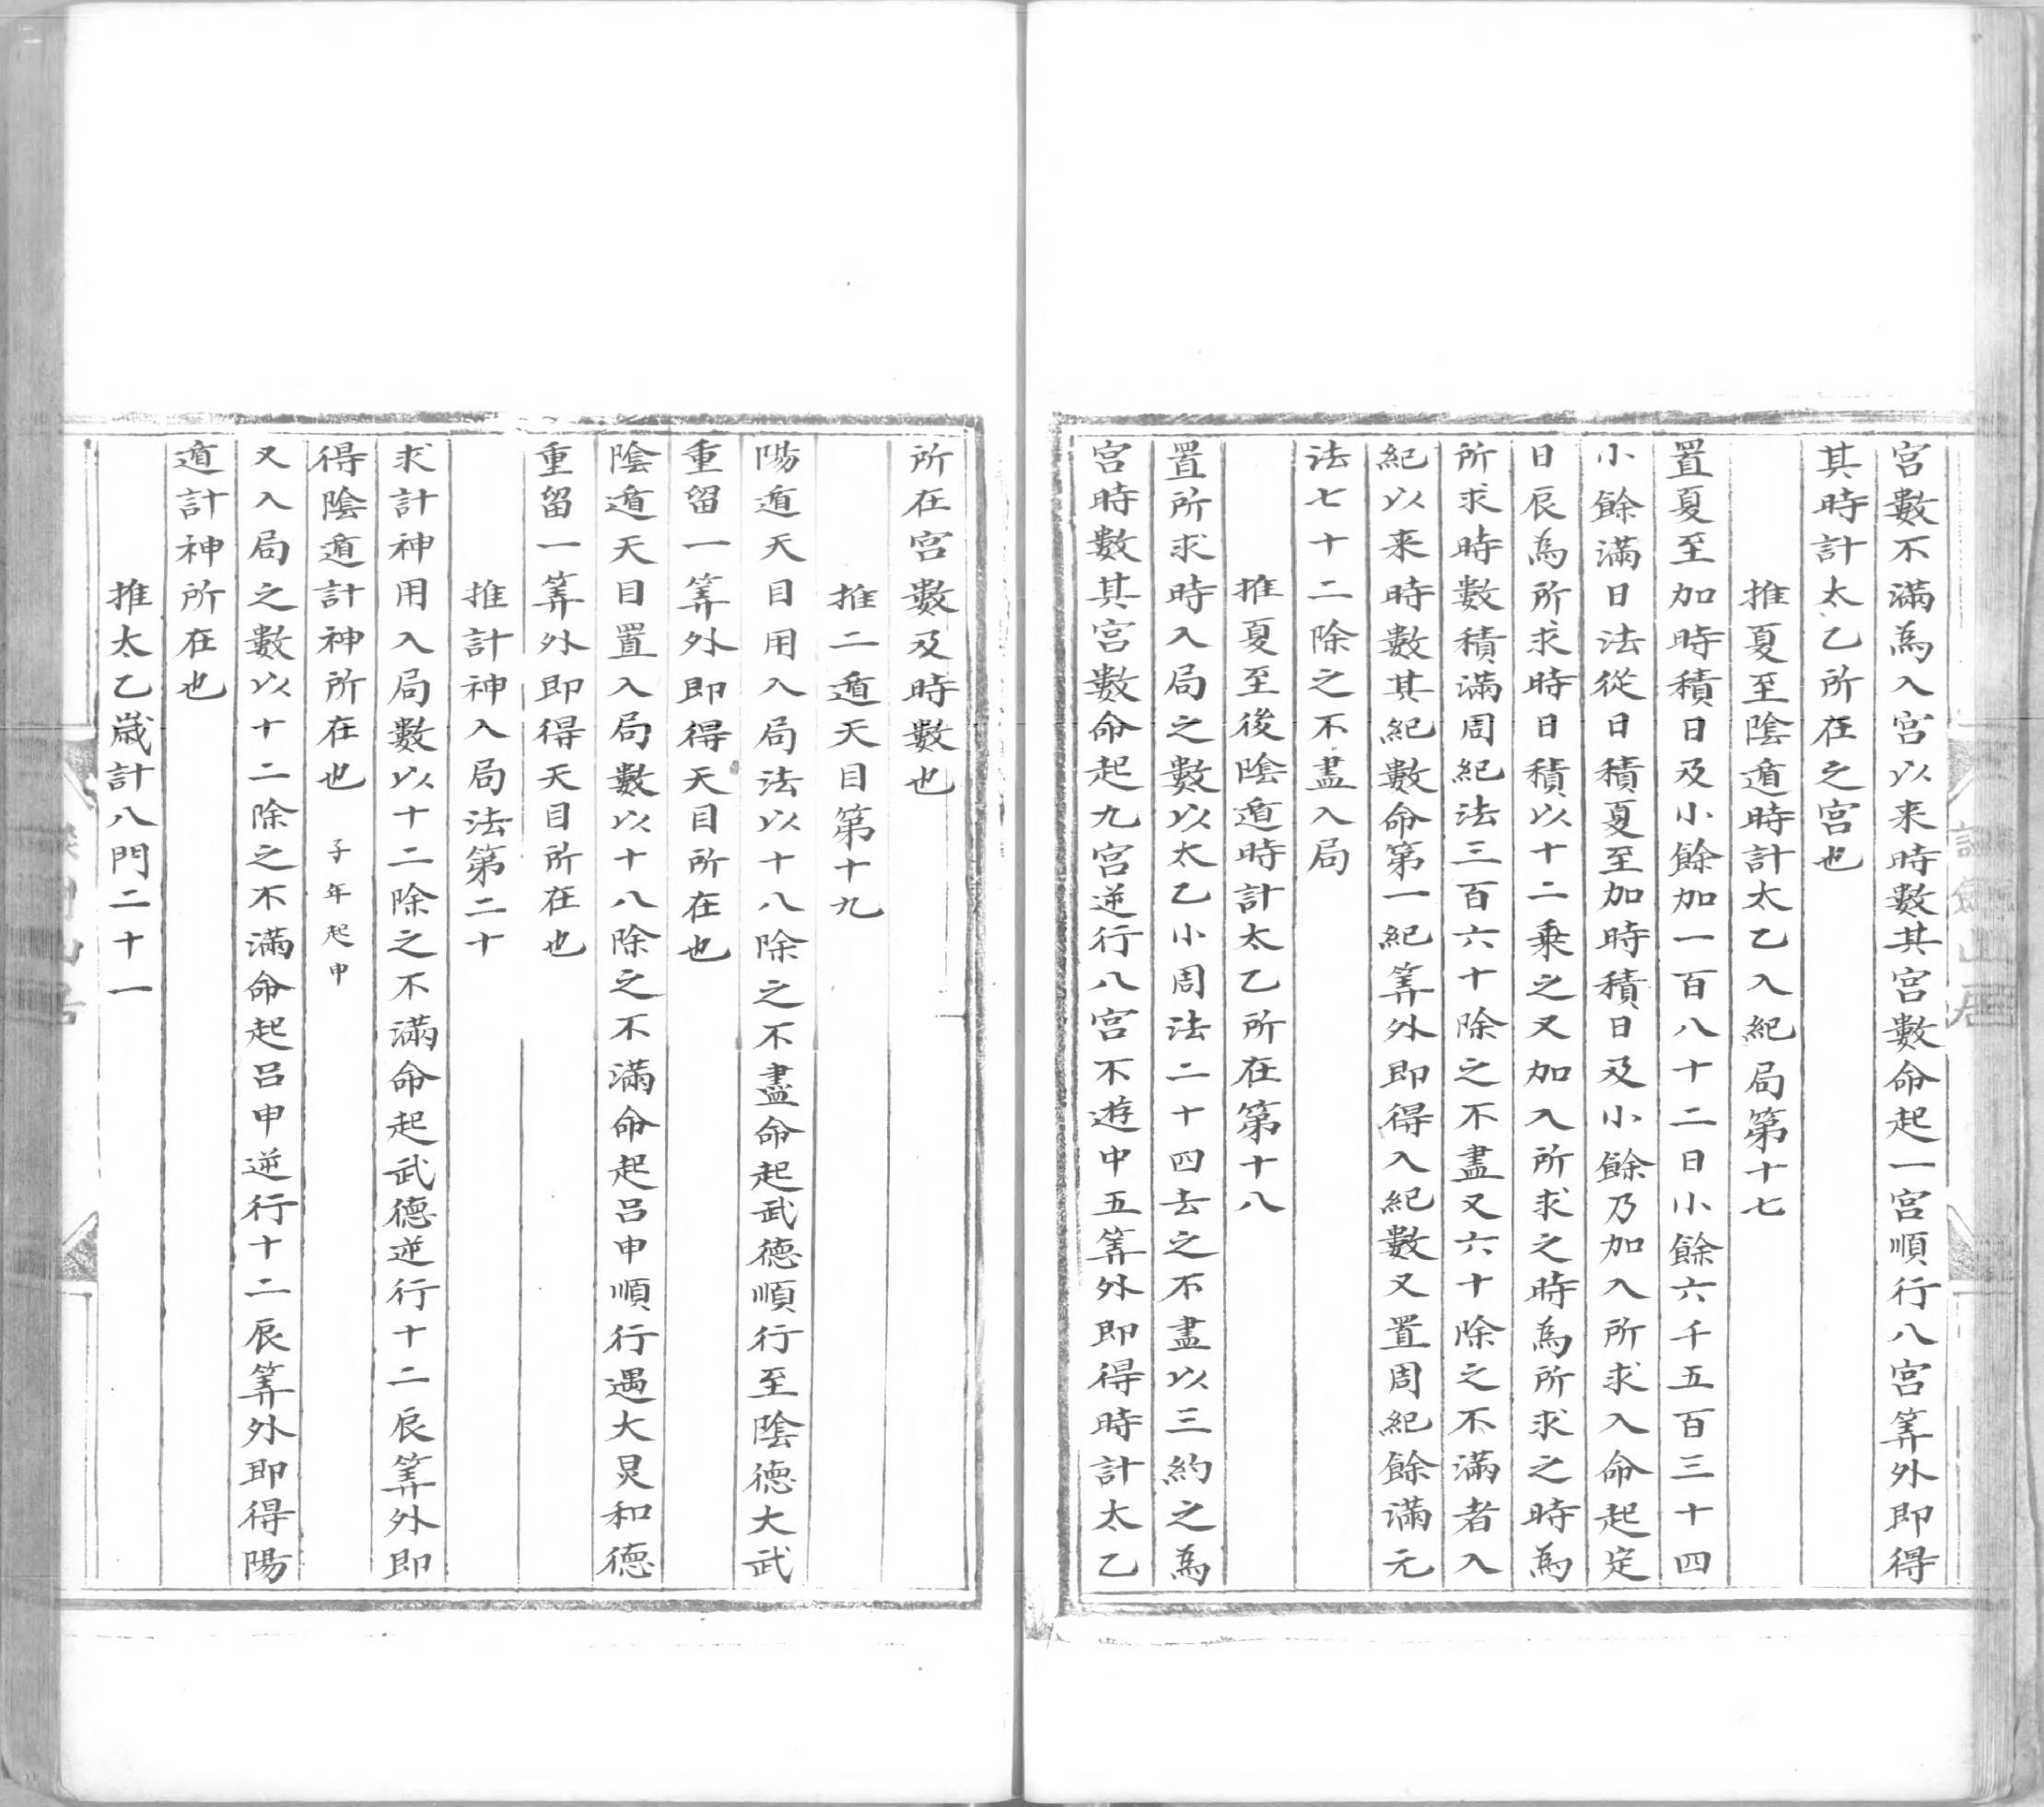 宮數不滿為入宮以来時數其宮數命起一宮順行八宮筭外即得
其時計太乙所在之宮也
推夏至陰遁時計太乙入紀局第十七
置夏至加時積日及小餘加一百八十二日小餘六千五百三十四
小餘滿日法從日積夏至加時積日及小餘乃加入所求入命起定
日辰為所求時日積以十二乘之又加入所求之時為所求之時為
所求時數積滿周紀法三百六十除之不盡又六十除之不滿者入
紀以来時數其紀數命第一紀筭外即得入紀數又置周紀餘滿元
法七十二除之不盡入局
推夏至後陰遁時計太乙所在第十八
置所求時入局之數以太乙小周法二十四去之不盡以三約之為
宮時數其宮數命起九宮逆行八宮不遊中五筭外即得時計太乙
所在宮數及時數也
推二遁天目第十九
陽遁天目用入局法以十八除之不盡命起武德順行至陰德大武
重留一筭外即得天目所在也
陰遁天目置入局數以十八除之不滿命起呂申順行遇大炅和德
重留一筭外即得天目所在也
推計神入局法第二十
求計神用入局數以十二除之不滿命起武德逆行十二辰筭外即
得陰遁計神所在也 子年起申
又入局之數以十二除之不滿命起呂申逆行十二辰筭外即得陽
遁計神所在也
推太乙嵗計八門二十一